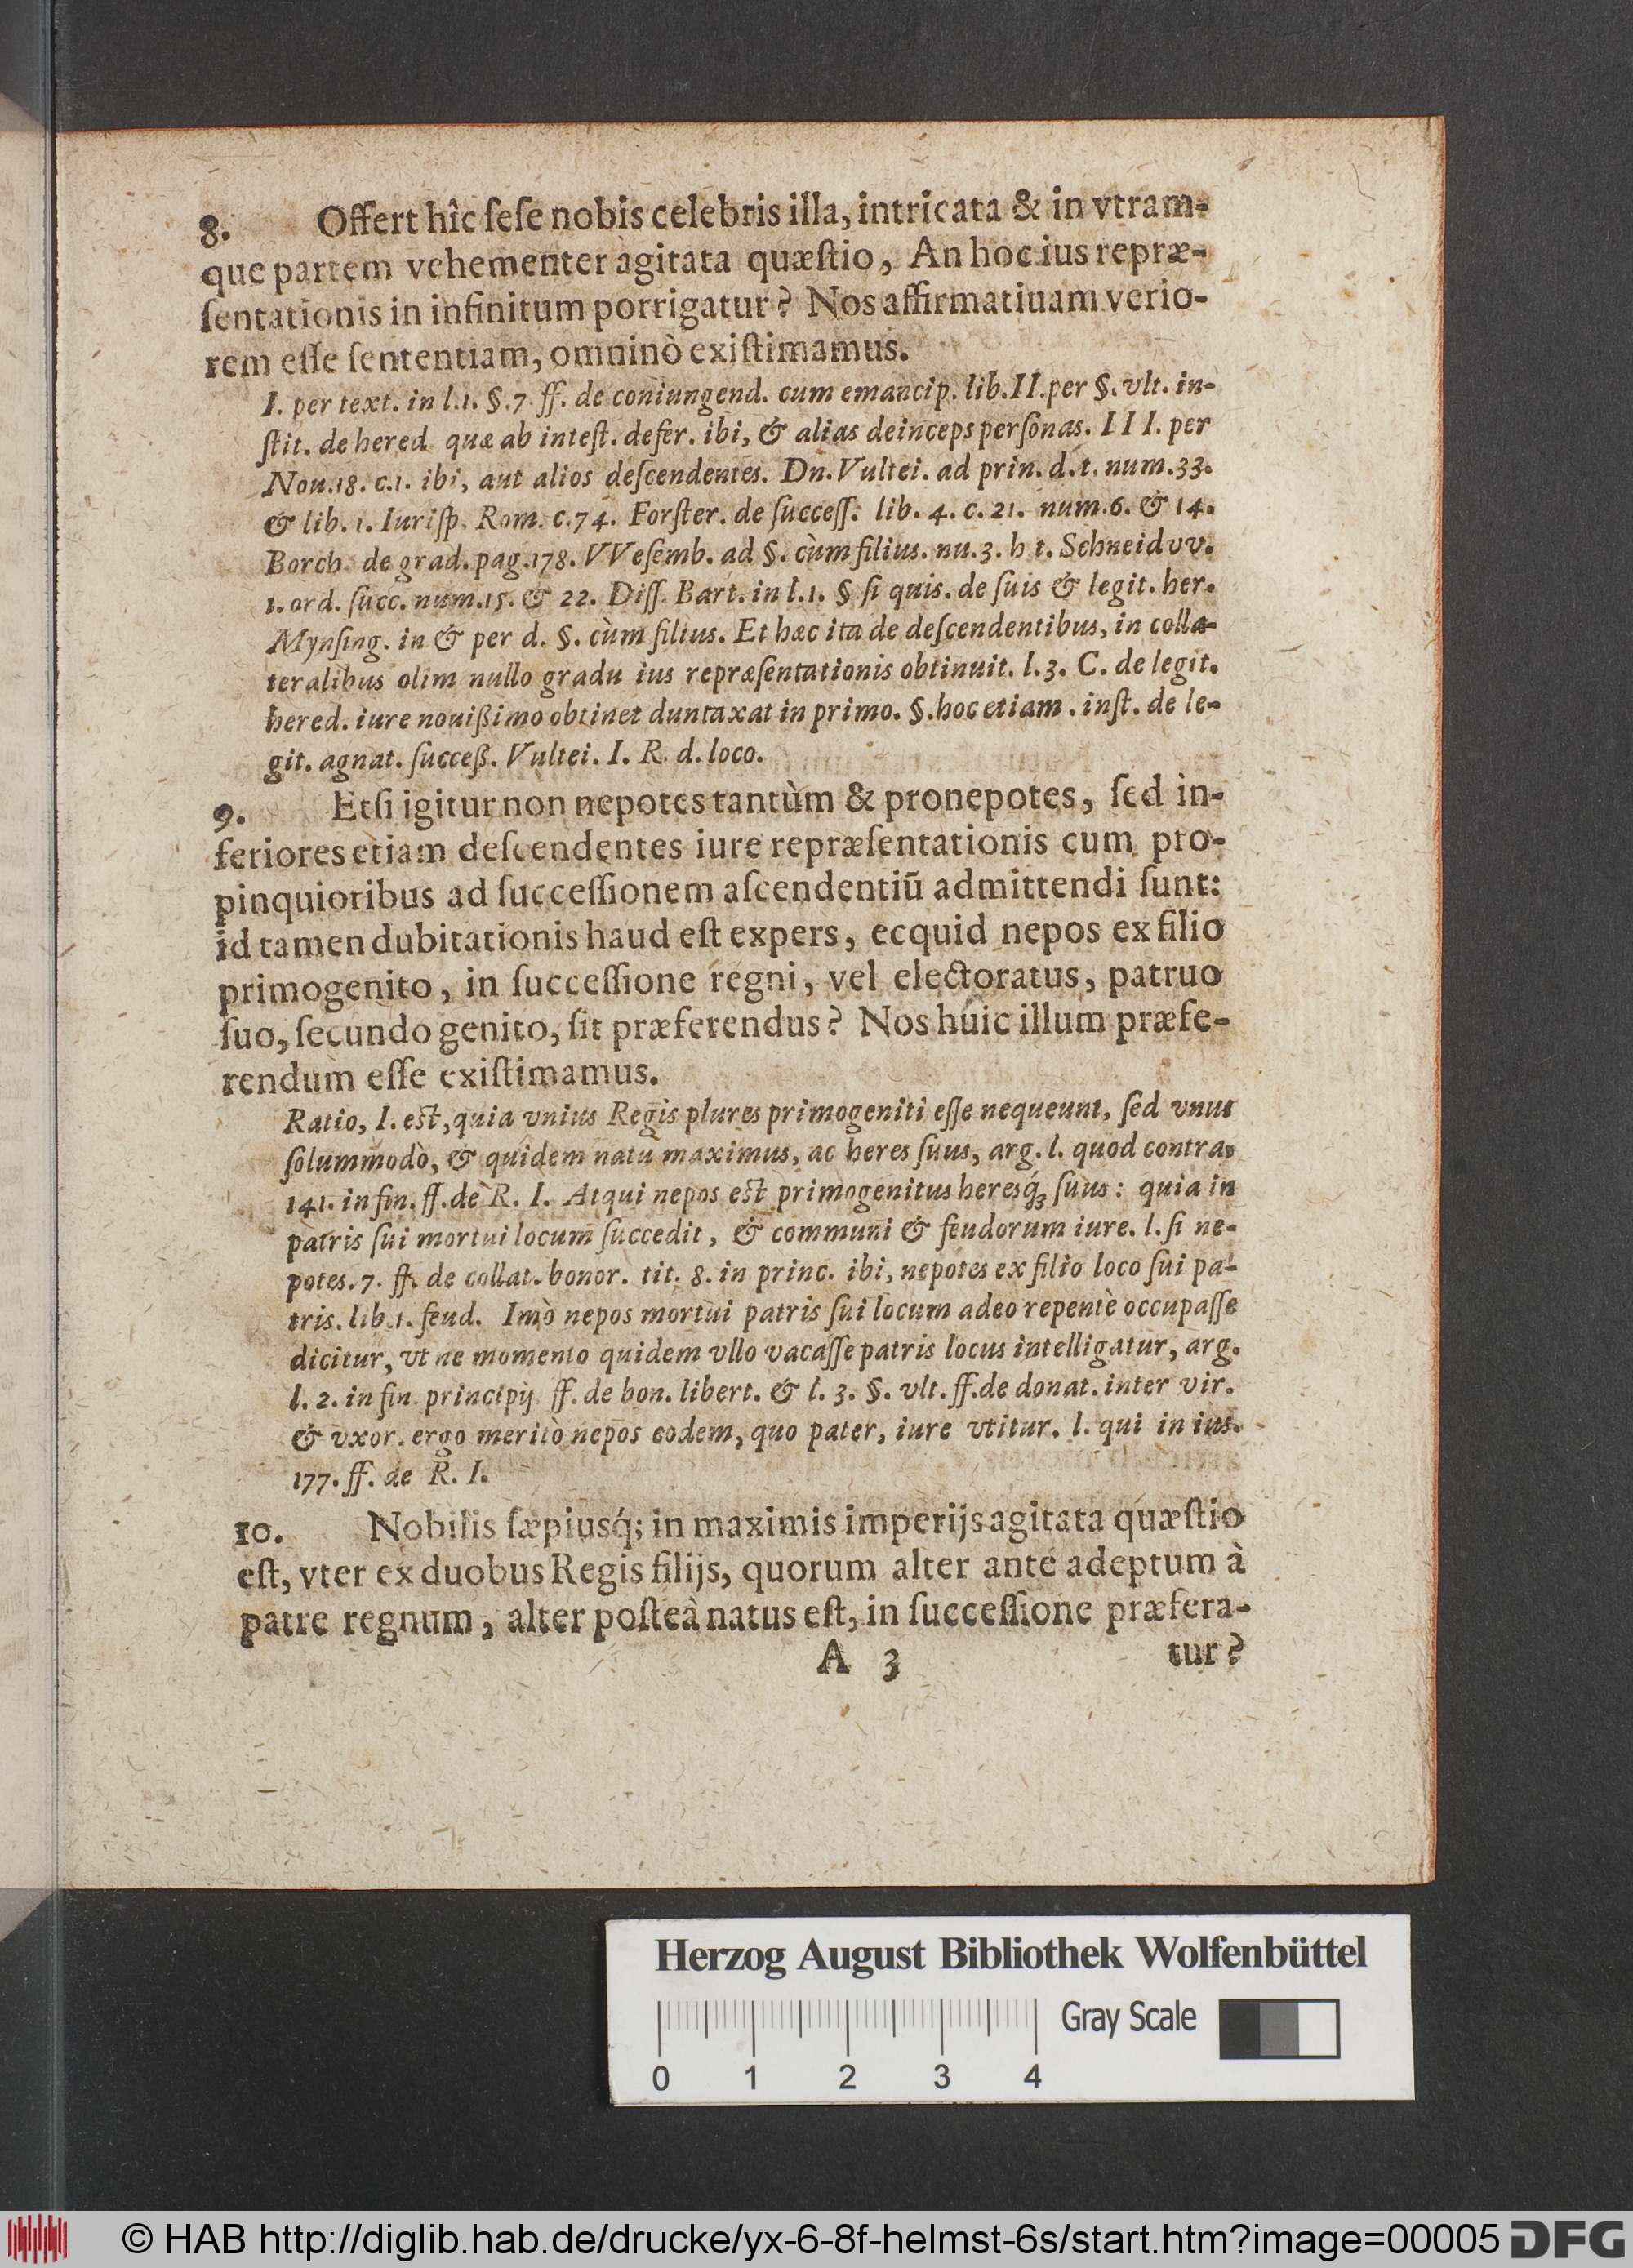 8. Offert hîc ſeſe nobis celebris illa, intricata & in vtram-
que partem vehementer agitata quæſtio, An hoc ius repræ-
ſentationis in infinitum porrigatur? Nos affirmatiuam verio-
rem eſſe ſententiam, omninò exiſtimamus.
I. per text. in l.1. §.7. ff. de coniungend. cum emancip. lib. II. per §. vlt. in-
ſtit. de hered. quæ ab inteſt. defer. ibi, & alias deinceps perſonas. III. per
Nou.18. c.1. ibi, aut alios deſcendentes. Dn. Vultei. ad prin. d. t. num.33.
& lib. 1. Iuriſp. Rom. c.74. Forſter. de ſucceſſ. lib. 4. c. 21. num.6. & 14.
Borch. de grad. pag.178. VVeſemb. ad §. cùm filius. nu.3. h t. Schneidvv.
1. ord. ſucc. num.15. & 22. Diſſ. Bart. in l.1. § ſi quis. de ſuis & legit. her.
Mynſing. in & per d. §. cùm filius. Et hæc ita de deſcendentibus, in colla-
teralibus olim nullo gradu ius repræſentationis obtinuit. l.3. C. de legit.
hered. iure nouißimo obtinet duntaxat in primo. §. hoc etiam. inſt. de le-
git. agnat. ſucceß. Vultei. I. R. d. loco.
9. Etſi igitur non nepotes tantùm & pronepotes, ſed in-
feriores etiam deſcendentes iure repræſentationis cum pro-
pinquioribus ad ſucceſſionem aſcendentiū admittendi ſunt:
id tamen dubitationis haud eſt expers, ecquid nepos ex filio
primogenito, in ſucceſſione regni, vel electoratus, patruo
ſuo, ſecundo genito, ſit præferendus? Nos huic illum præfe-
rendum eſſe exiſtimamus.
Ratio, I. eſt, quia vnius Regis plures primogeniti eſſe nequeunt, ſed vnus
ſolummodò, & quidem natu maximus, ac heres ſuus, arg. l. quod contra.
141. in fin. ff. de R. I. Atqui nepos eſt primogenitus heresq́ꝫ ſuus: quia in
patris ſui mortui locum ſuccedit, & communi & feudorum iure. l. ſi ne-
potes. 7. ff. de collat. bonor. tit. 8. in princ. ibi, nepotes ex filio loco ſui pa-
tris. lib.1. feud. Imò nepos mortui patris ſui locum adeo repentè occupaſſe
dicitur, vt ne momento quidem vllo vacaſſe patris locus intelligatur, arg.
l. 2. in fin. principij ff. de bon. libert. & l. 3. §. vlt. ff. de donat. inter vir.
& vxor. ergo meritò nepos eodem, quo pater, iure vtitur. l. qui in ius.
177. ff. de R. I.
10. Nobilis ſæpiusq́; in maximis imperijs agitata quæſtio
eſt, vter ex duobus Regis filijs, quorum alter ante adeptum à
patre regnum, alter poſteà natus eſt, in ſucceſſione præfera-
A 3 tur?
Herzog August Bibliothek Wolfenbüttel
Gray Scale
0 1 2 3 4
© HAB http://diglib.hab.de/drucke/yx-6-8f-helmst-6s/start.htm?image=00005 DFG